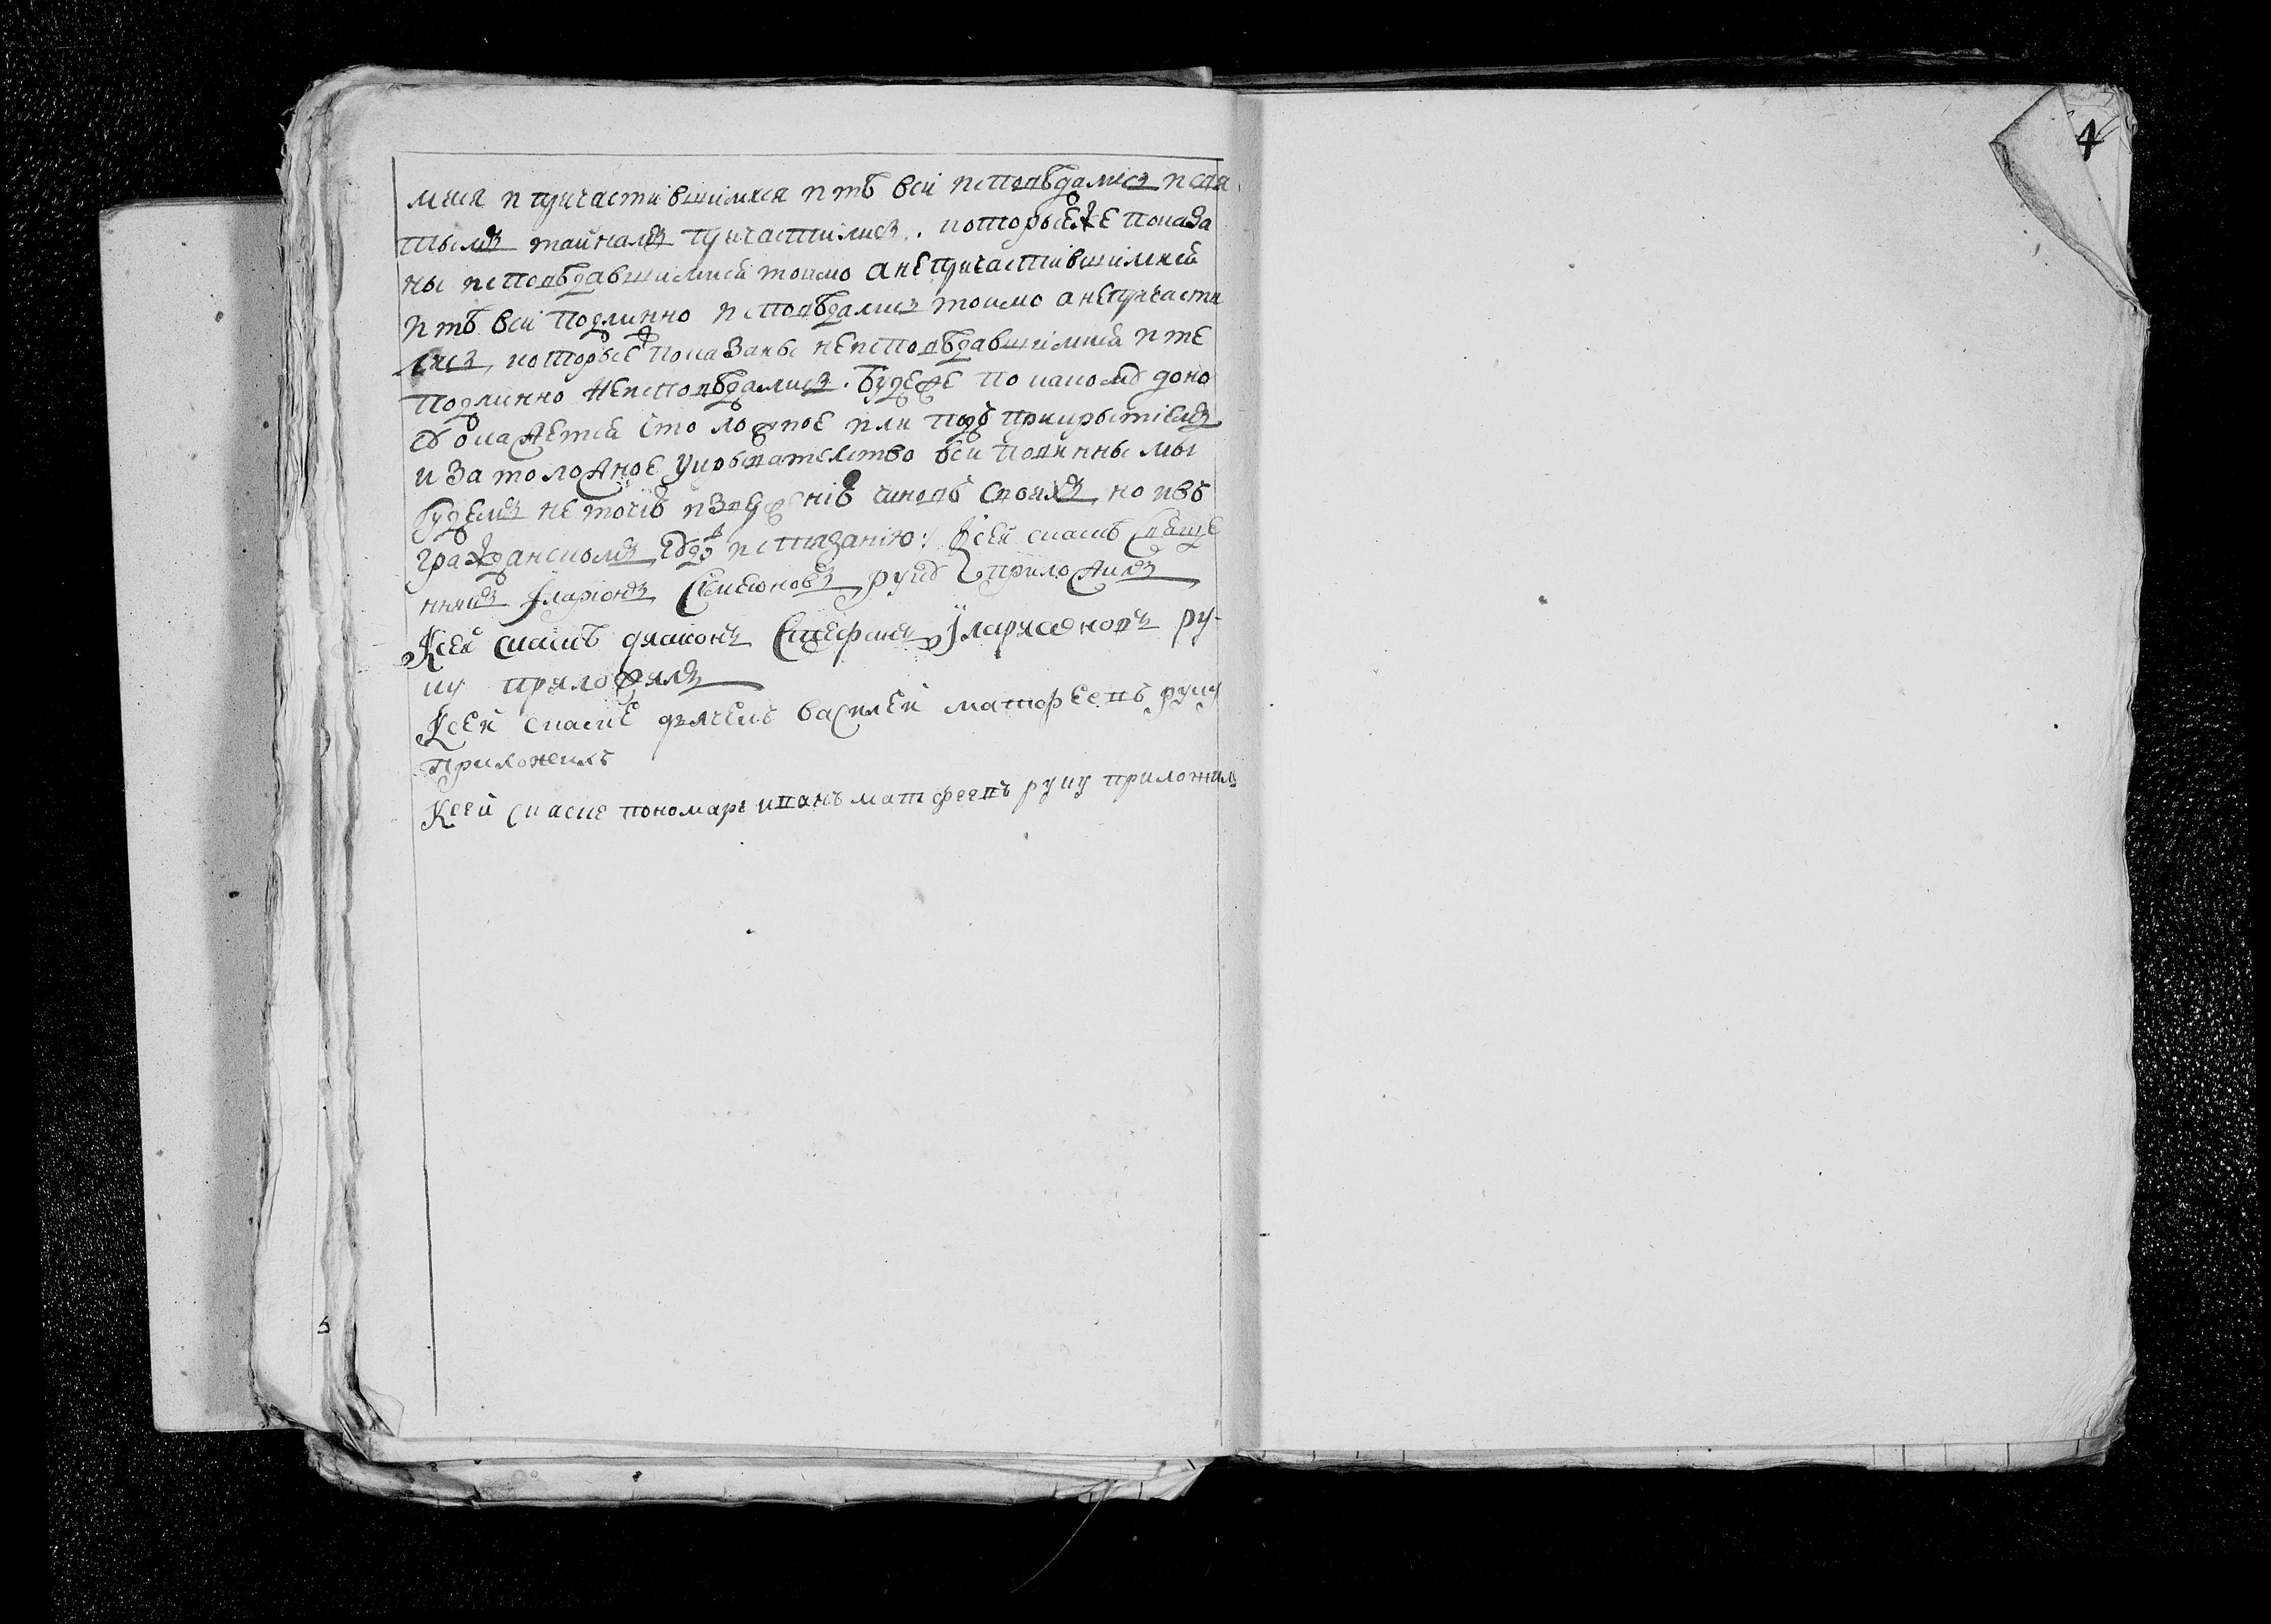 4
мися и причастившимися и тѣ вси исповѣдались и свя
тымъ тайнамъ причастились. которыеже показа
ны исповѣдавшимися токмо а не причастившимися
и тѣ вси подлинно исповѣдались токмо а не причасти
лись, которые показаны неисповѣдавшимися и те
подлинно неисповѣдались. Будеже по какому доно
су окажется что ложное или подъ прикрытіемъ
и за то ложное укрывателство вси повинны мы
будемъ не точію изверженію чиновъ своихъ но и въ
гражданскомъ судѣ истязанію: Ксей скаскѣ Свяще
нникъ Іларіонъ Симеоновъ руку приложилъ
Ксей скаскѣ диаконъ Стефанъ Іларионовъ ру-
ку приложилъ
Ксей скаске дьячекъ василей матфеевъ руку
приложилъ
Ксей скаске пономарь иванъ матфеевъ руку приложилъ